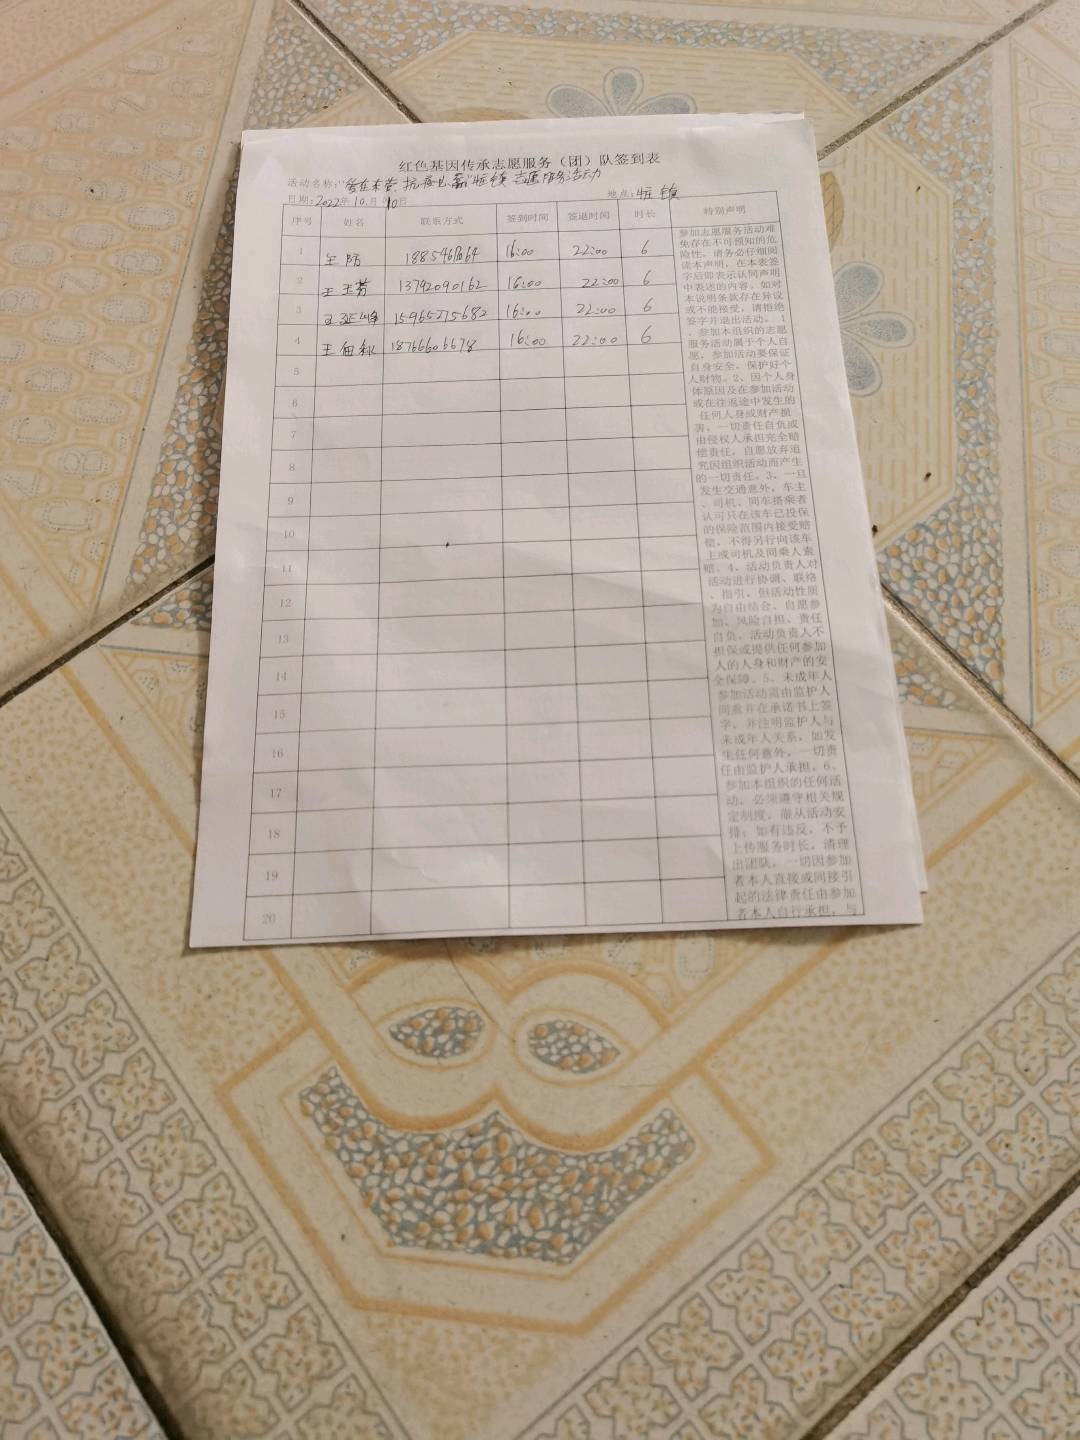 红色基因传承志愿服务（团）队签到表
活动名称：志愿服务活动
日期：2022年10月10日 地点：镇
序号 姓名 联系方式 签到时间 签退时间 时长 特别声明
1 王 16:00 22:00 6
2 王玉芳 13792090162 16:00 22:00 6
3 王延峰 15965275682 16:00 22:00 6
4 王 秋 18766606678 16:00 22:00 6
5
6
7
8
9
10
11
12
13
14
15
16
17
18
19
20
参加志愿服务活动难
免存在不可预知的危
险性，请务必仔细阅
读本声明，在本表签
字后即表示认同声明
中表述的内容。如对
本说明条款存在异议
或不能接受，请拒绝
签字并退出活动。1
、参加本组织的志愿
服务活动属于个人自
愿，参加活动要保证
自身安全，保护好个
人财物。2、因个人身
体原因及在参加活动
或在往返途中发生的
任何人身或财产损
害，一切责任自负或
由侵权人承担完全赔
偿责任，自愿放弃追
究因组织活动而产生
的一切责任。3、一旦
发生交通意外，车主
、司机、同车搭乘者
认可只在该车已投保
的保险范围内接受赔
偿，不得另行向该车
主或司机及同乘人索
赔。4、活动负责人对
活动进行协调、联络
、指引，但活动性质
为自由结合、自愿参
加、风险自担、责任
自负。活动负责人不
担保或提供任何参加
人的人身和财产的安
全保障。5、未成年人
参加活动需由监护人
同意并在承诺书上签
字，并注明监护人与
未成年人关系，如发
生任何意外，一切责
任由监护人承担。6、
参加本组织的任何活
动，必须遵守相关规
定制度，服从活动安
排；如有违反，不予
上传服务时长，清理
出团队，一切因参加
者本人直接或间接引
起的法律责任由参加
者本人自行承担，与